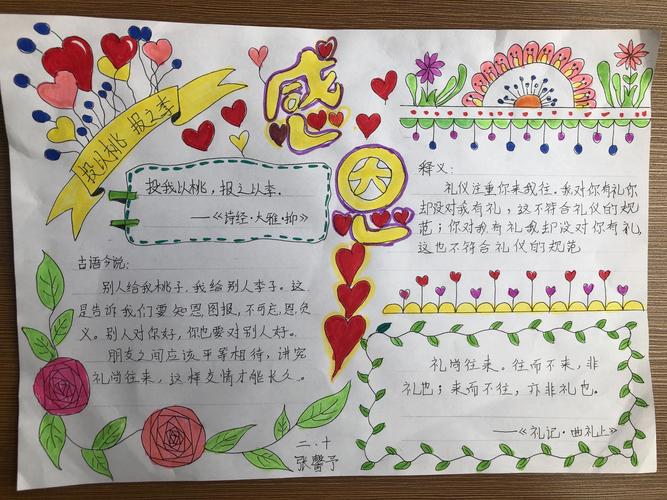 投以桃 报之李
感恩
投我以桃,报之以李.
——《诗经·大雅·抑》
古语今说:
别人给我桃子,我给别人李子。这
是告诉我们要知恩图报,不可忘恩负
义。别人对你好,你也要对别人好。
朋友之间应该平等相待,讲究
礼尚往来,这样友情才能长久。
二.十
张馨予
释义:
礼仪注重你来我往。我对你有礼你
却没对我有礼,这不符合礼仪的规
范;你对我有礼我却没对你有礼,
这也不符合礼仪的规范
礼尚往来。往而不来,非
礼也;来而不往,亦非礼也。
——《礼记·曲礼上》